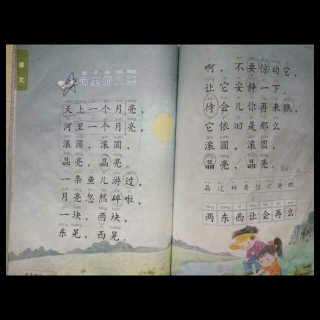 课文
河里的月亮
天上一个月亮，
河里一个月亮。
滚圆，滚圆，
晶亮，晶亮。
一条鱼儿游过，
月亮忽然碎啦，
一块，两块，
东晃，西晃。
啊，不要惊动它，
让它安静一下，
待会儿你再来瞧，
它依旧是那么
滚圆，滚圆，
晶亮，晶亮。
晶过碎
两东西让会再么